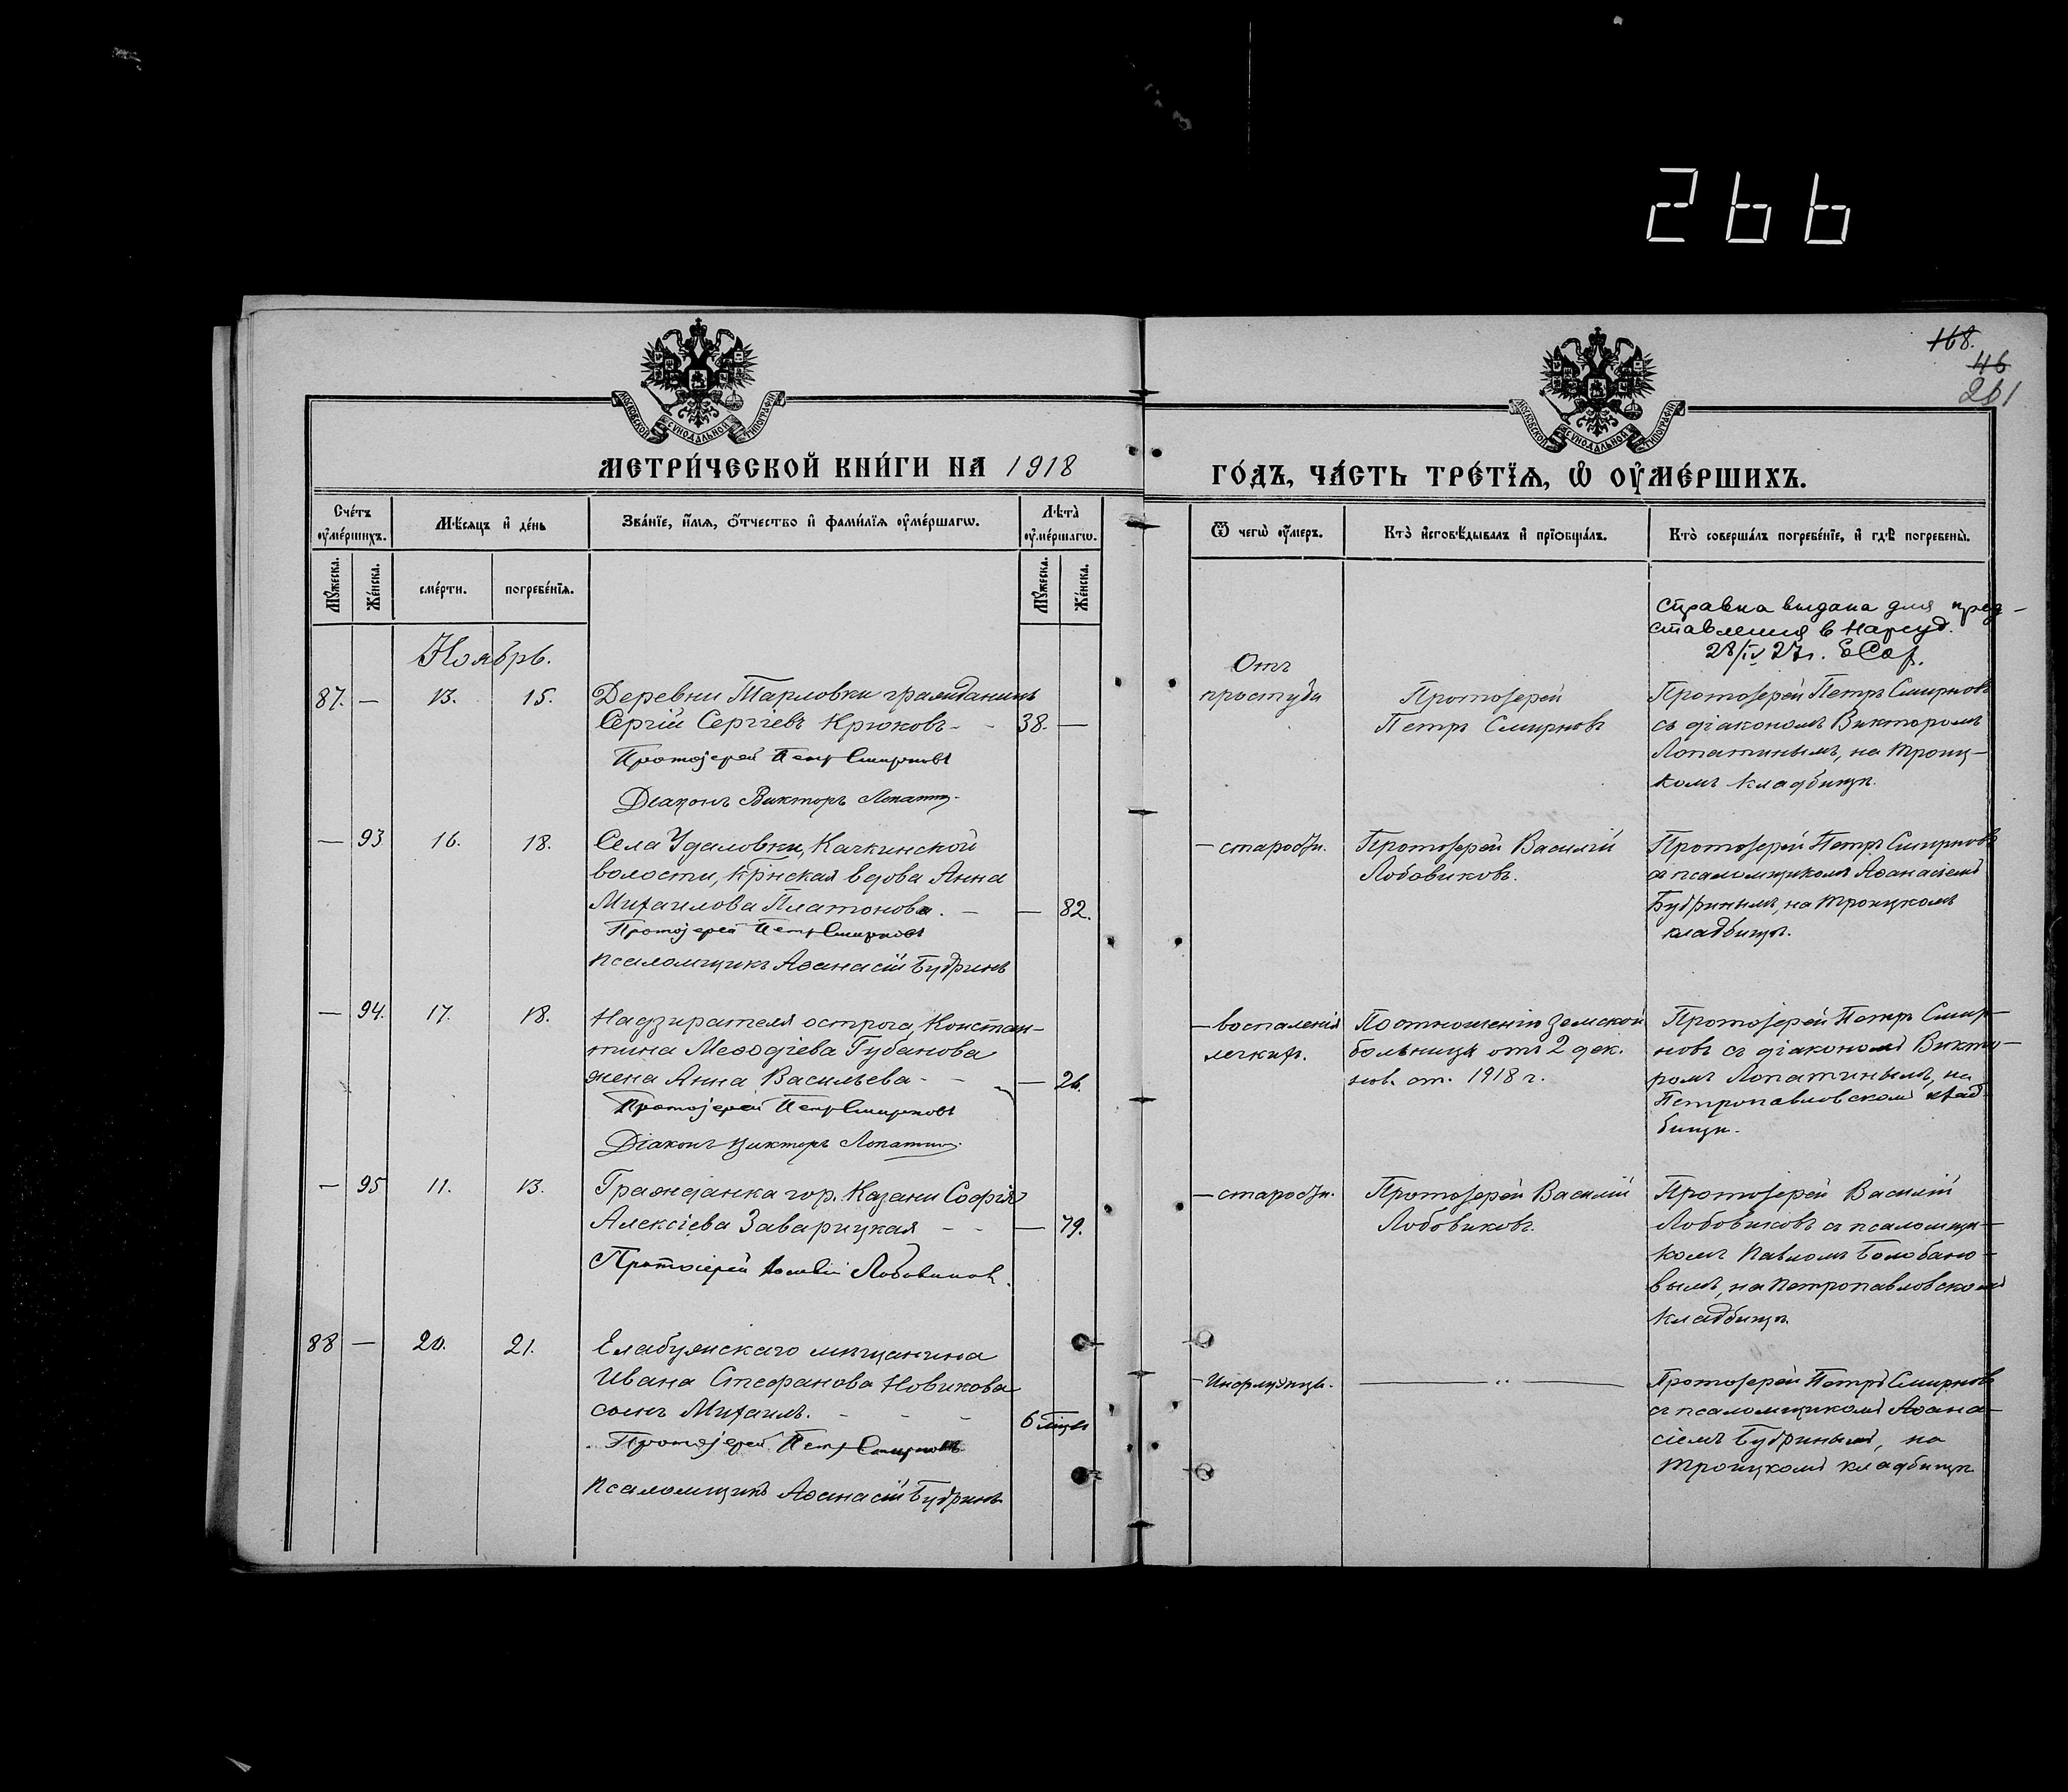 266
168.
46
261
МОСКОВСКОЙ СѴНОДАЛЬНОЙ ТИПОГРАФІИ
МОСКОВСКОЙ СѴНОДАЛЬНОЙ ТИПОГРАФІИ
МЕТРИ́ЧЕСКОЙ КНИ́ГИ НА 1918
ГО́ДЪ, ЧА́СТЬ ТРЕ́ТЇѦ, Ѽ ОУ҆МЕ́РШИХЪ.
Сче́тъ оу҆ме́ршихъ.
Мѣ́сѧцъ и҆ де́нь
Зва́нїе, и҆́мѧ, ѻ҆́тчество и҆ фами́лїѧ оу҆ме́ршагѡ.
Лѣ́та̀ оу҆ме́ршагѡ.
Ѿ чегѡ̀ оу҆́меръ.
Кто̀ и҆сповѣ́дывалъ и҆ прїѻбща́лъ.
Кто̀ соверша́лъ погребе́нїе, и҆ гдѣ̀ погребены̀.
Мꙋ́жеска.
Же́нска.
сме́рти.
погребе́нїѧ.
Мꙋ́жеска.
Же́нска.
справка выдана для пред-
ставления в Нарсуд.
28/IV 27г.
Ноябрь.
87. — 13. 15. Деревни Тарловки гражданинъ
Сергій Сергіевъ Крюковъ - - 38. —
Протоіерей Петр Смирновъ
Діаконъ Викторъ Лопатин
Отъ
простуды
Протоіерей
Петръ Смирновъ
Протоіерей Петръ Смирновъ
съ діакономъ Викторомъ
Лопатинымъ, на Троиц-
комъ кладбищѣ.
— 93 16. 18. Села Удаловки, Качкинской
волости, крнская вдова Анна
Михаилова Платонова. — — 82.
Протоіерей Петр Смирновъ
Псаломщикъ Аѳанасій Будринъ
— старости.
Протоіерей Василій
Лобовиковъ.
Протоіерей Петръ Смирновъ
съ псаломщикомъ Аѳанасіемъ
Будринымъ, на Троицкомъ
кладбищѣ.
— 94. 17. 18. Надзирателя острога, Констан-
тина Меѳодіева Губанова
жена Анна Васильева - - — 26.
Протоіерей Петр Смирновъ
Діаконъ Викторъ Лопатин
— воспаленія
легкихъ.
По отношенію Земской
больницы отъ 2 дек.
нов. ст. 1918 г.
Протоіерей Петръ Смир-
новъ съ діакономъ Викто-
ромъ Лопатинымъ, на
Петропавловскомъ клад-
бищѣ.
— 95 11. 13. Гражданка гор. Казани Софія
Алексіева Заварицкая - - — 79.
Протоіерей Василій Лобовиков.
— старости.
Протоіерей Василій
Лобовиковъ.
Протоіерей Василій
Лобовиковъ съ псаломщи-
комъ Павломъ Болобано-
вымъ, на Петропавловскомъ
кладбищѣ.
88 — 20. 21. Елабужскаго мѣщанина
Ивана Стефанова Новикова
сынъ Михаилъ. - - - 6 мцвъ
Протоіерей Петр Смирновъ
Псаломщикъ Аѳанасій Будринъ
— Инфлуэнцы.
— " —
Протоіерей Петръ Смирновъ
съ псаломщикомъ Аѳана-
сіемъ Будринымъ, на
Троицкомъ кладбищѣ